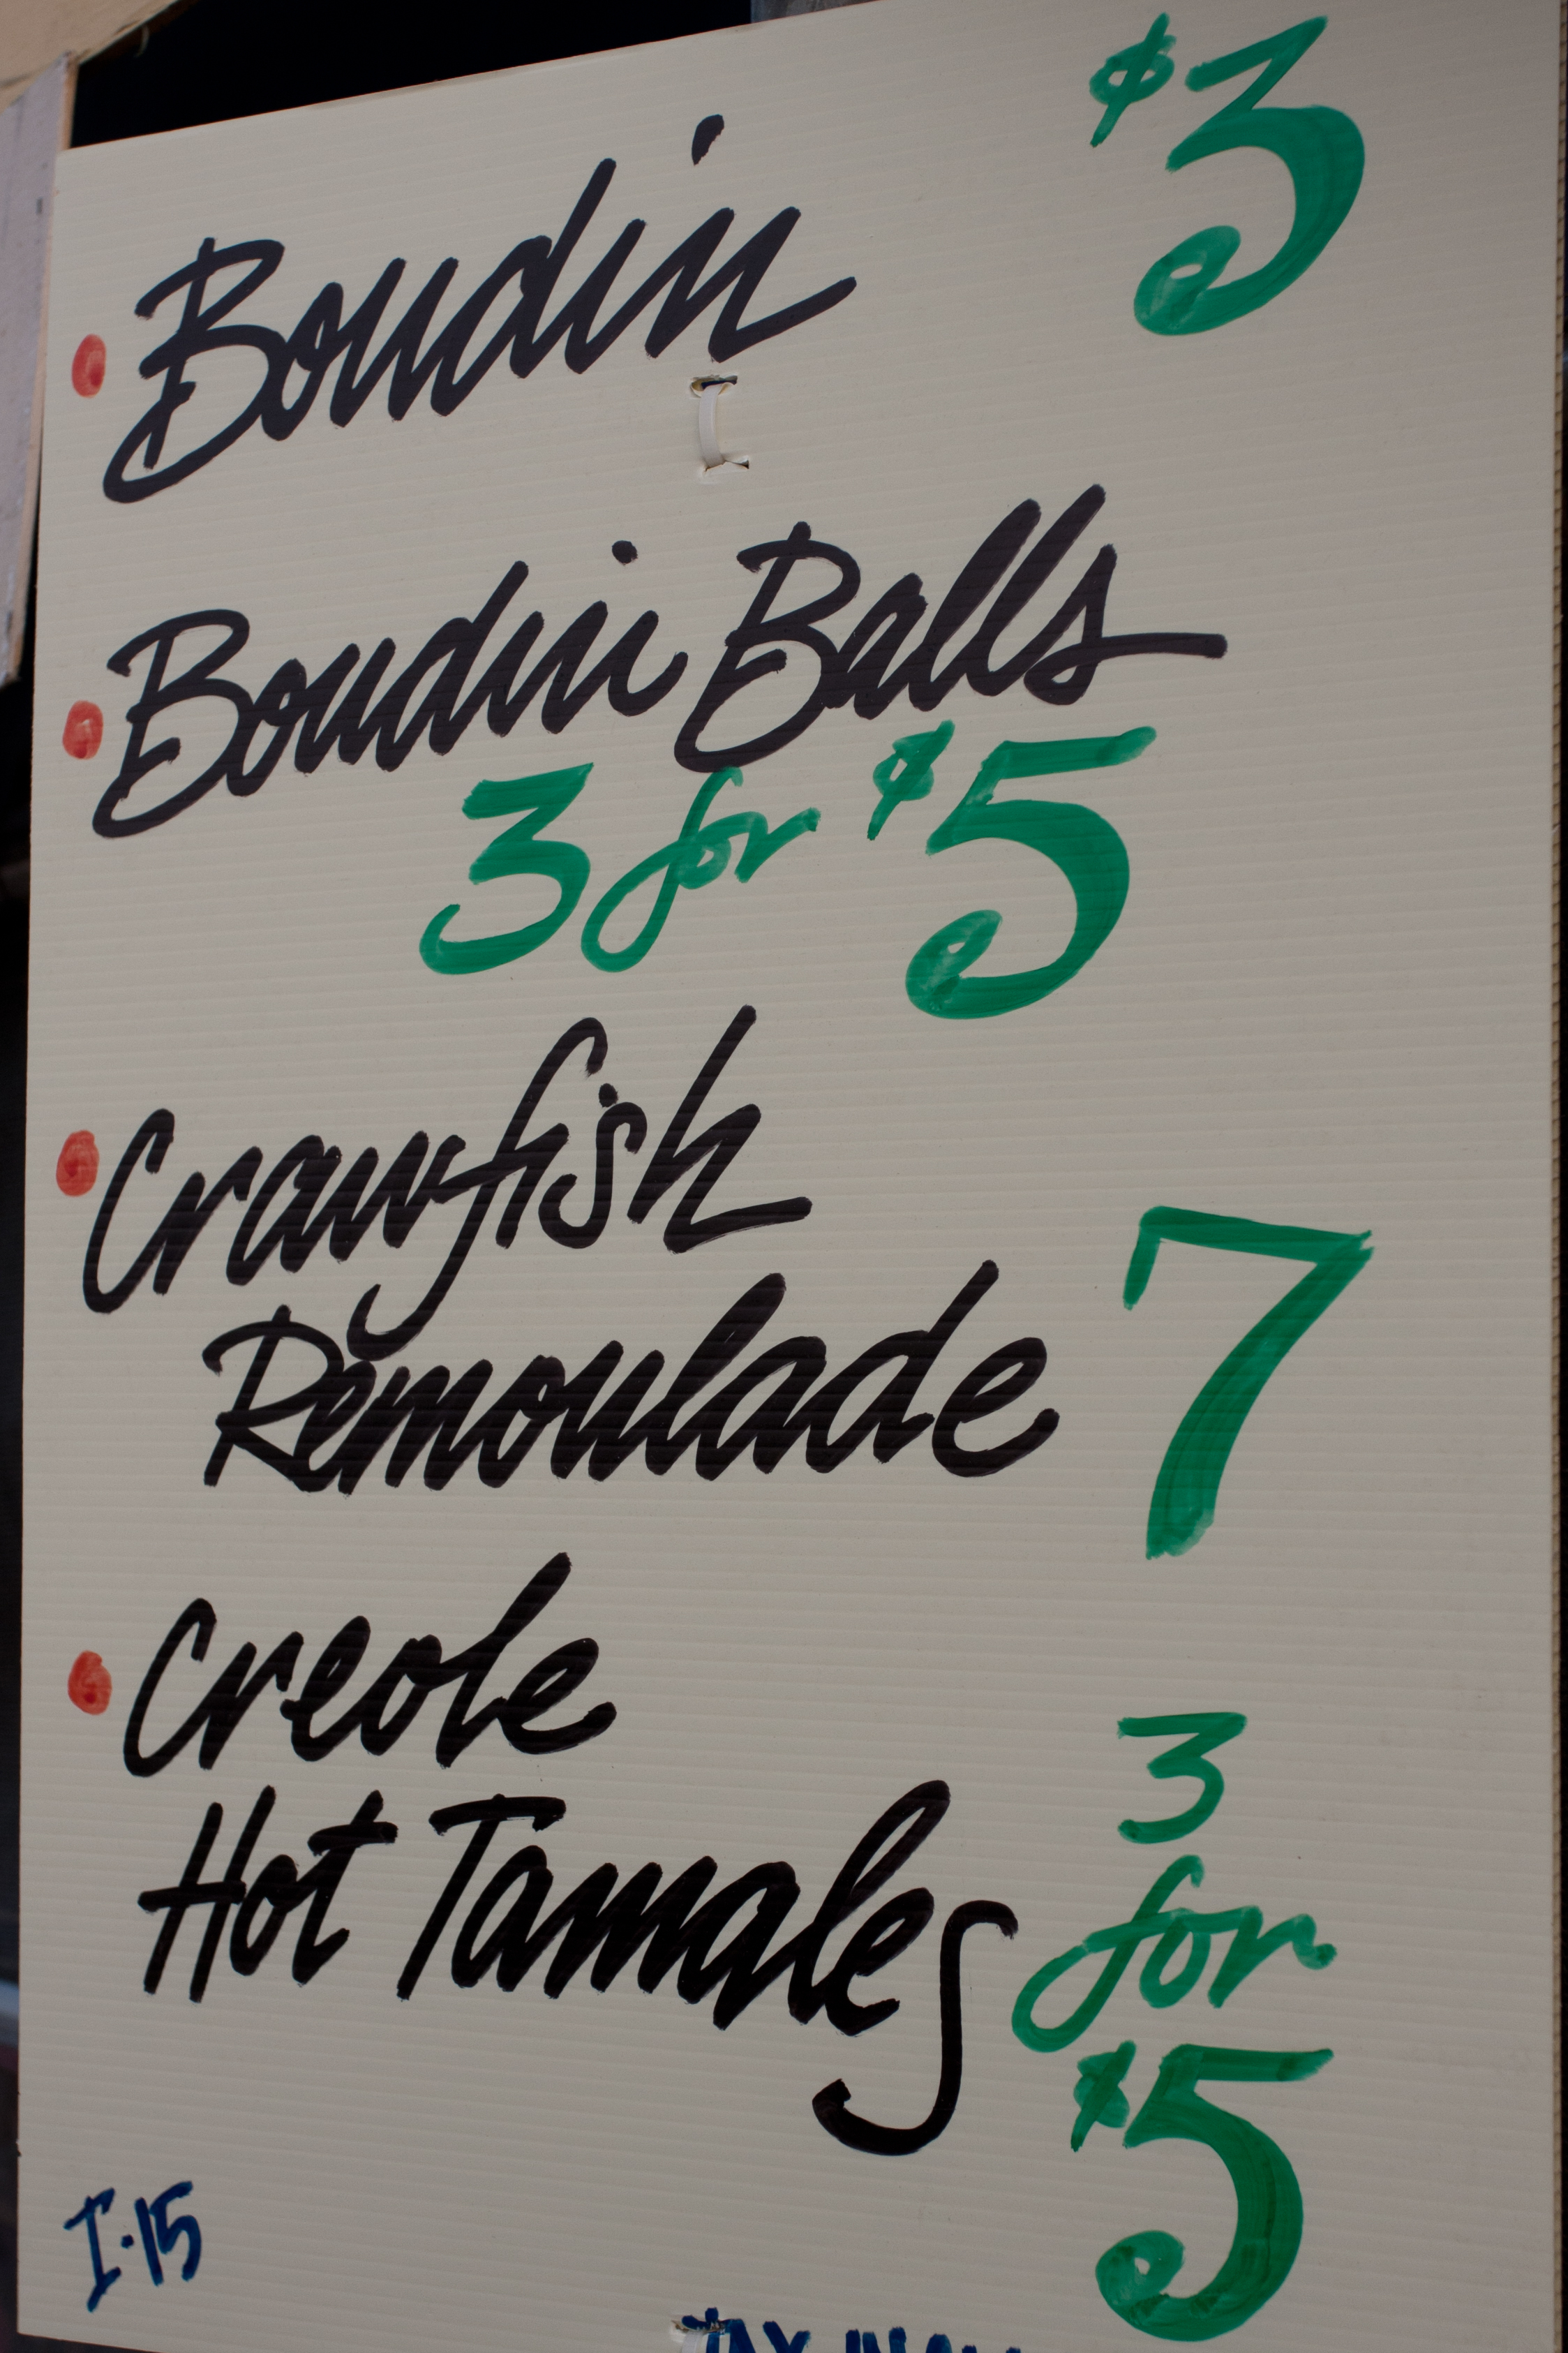 Boudin $3
Boudin Balls
3 for $5
Crawfish
Remoulade 7
Creole
Hot Tamales 3 for $5
I-15
TAX